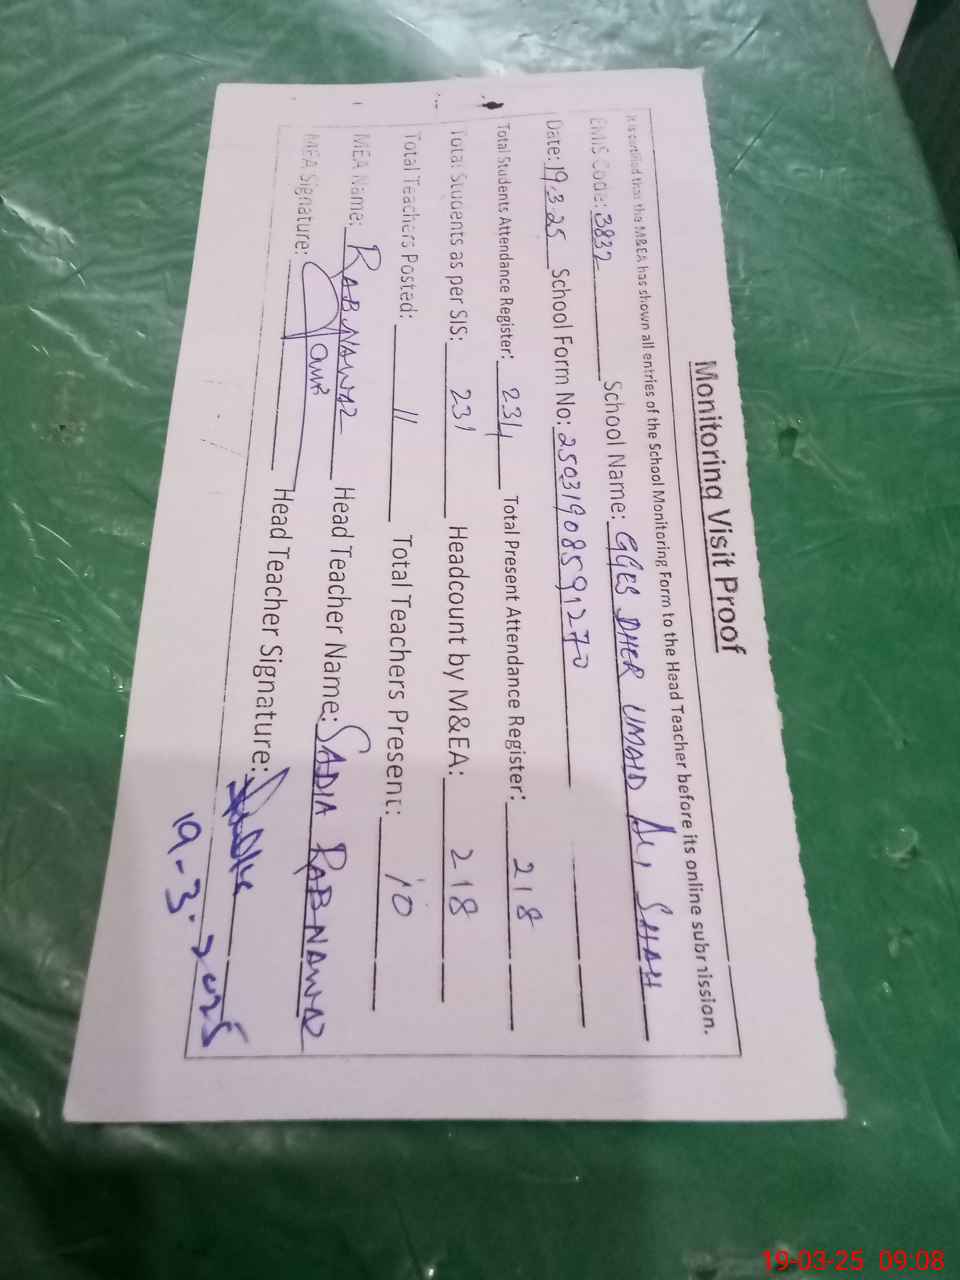 Monitoring Visit Proof
It is certified that the M&EA has shown all entries of the School Monitoring Form to the Head Teacher before its online submission.
EMIS Code: 3832 School Name: GGES DHER UMAID ALI SHAH
Date: 19.3.25 School Form No: 25031908591270
Total Students Attendance Register: 234 Total Present Attendance Register: 218
Total Students as per SIS: 231 Headcount by M&EA: 218
Total Teachers Posted: 11 Total Teachers Present: 10
MEA Name: RAB NAWAZ Head Teacher Name: SADIA RAB NAWAZ
MEA Signature: Head Teacher Signature:
19-3-2025
19-03-25 09:08